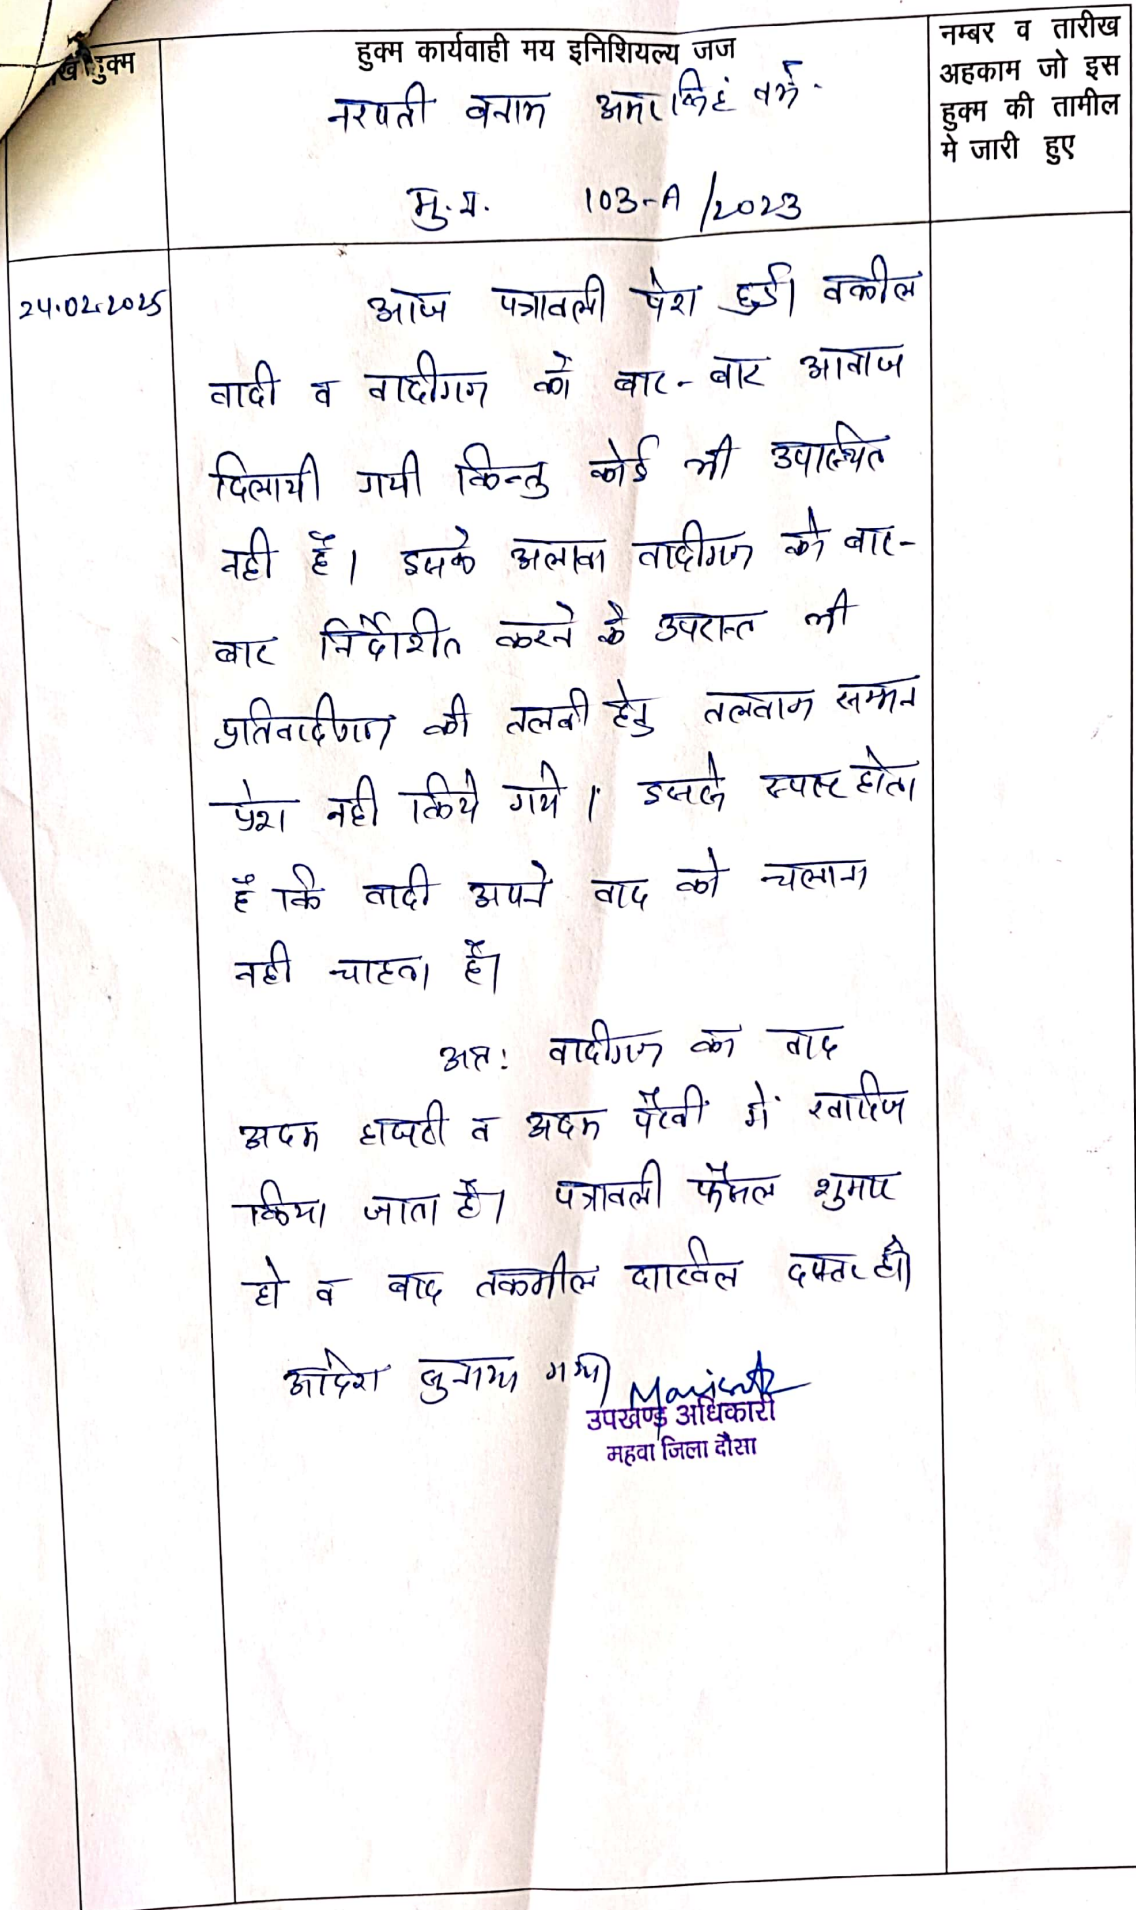 हुक्म
हुक्म कार्यवाही मय इनिशियल्य जज
नम्बर व तारीख
अहकाम जो इस
हुक्म की तामील
मे जारी हुए
नरपती बनाम अमर सिंह
मु.न. 103-A/2023
24.02.2025
आज पत्रावली पेश हुई। वकील
वादी व वादीगण को बार-बार आवाज
दिलायी गयी किन्तु कोई भी उपस्थित
नही है। इसके अलावा वादीगण को बार-
बार निर्देशीत करने के उपरान्त भी
प्रतिवादीगण की तलबी हेतु तलवाना सम्मन
पेश नही किये गये। इससे स्पष्ट होता
है कि वादी अपने वाद को चलाना
नही चाहता है।
अतः वादीगण का वाद
अदम हाजरी व अदम पैरवी में खारिज
किया जाता है। पत्रावली फैसल शुमार
हो व बाद तकमील दाखिल दफ्तर हो।
आदेश सुनाया गया।
उपखण्ड अधिकारी
महवा जिला दौसा